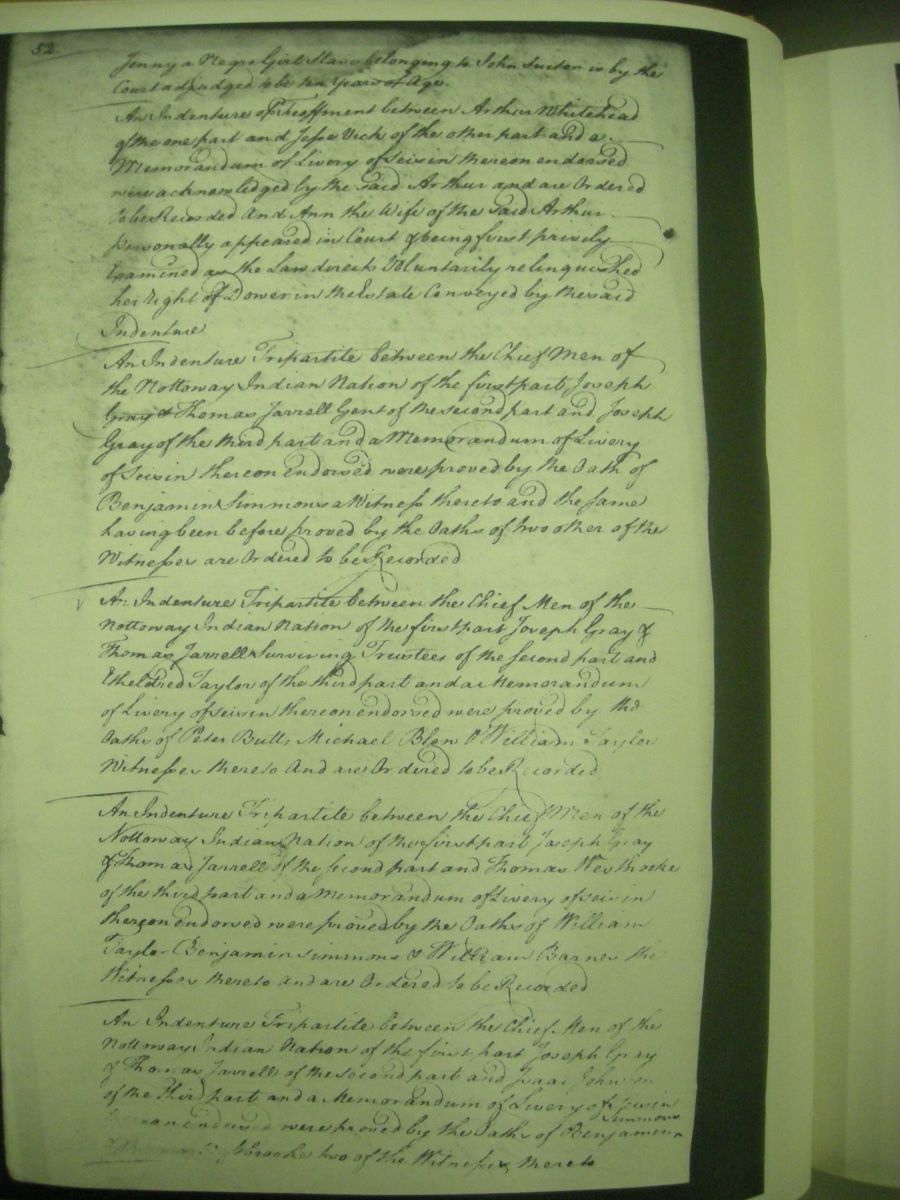 52
Jenny a Negro Girl Slave belonging to John is by the
Court adjudged to be ten Years of Age
An Indenture of Feoffment between Arthur Whitehead
of the one part and Jesse Vick of the other part and a
Memorandum of Livery of Seisin thereon endorsed
were acknowledged by the said Arthur and are Ordered
to be Recorded And Ann the Wife of the said Arthur
personally appeared in Court & being first privily
Examined as the Law directs Voluntarily relinquished
her right of Dower in the Estate Conveyed by the said
Indenture
An Indenture Tripartite between the Chief Men of
the Nottoway Indian Nation of the first part Joseph
Gray & Thomas Jarrell Gent of the second part and Joseph
Gray of the third part and a Memorandum of Livery
of Seisin thereon Endorsed were proved by the Oath of
Benjamin Simmons a Witness thereto and the same
having been before proved by the Oaths of two other of the
Witnesses are Ordered to be Recorded
An Indenture Tripartite between the Chief Men of the
Nottoway Indian Nation of the first part Joseph Gray &
Thomas Jarrell Surviving Trustees of the second part and
Etheldred Taylor of the third part and a Memorandum
of Livery of seisin thereon endorsed were proved by the
Oaths of Peter Butts Michael Blow & William Taylor
Witnesses thereto And are Ordered to be Recorded
An Indenture Tripartite between the Chief Men of the
Nottoway Indian Nation of the first part Joseph Gray
& Thomas Jarrell of the second part and Thomas
of the third part and a Memorandum of Livery of seisin
thereon endorsed were proved by the Oaths of William
Taylor Benjamin Simmons & William Barnes the
Witnesses thereto and are Ordered to be Recorded
An Indenture Tripartite between the Chief Men of the
Nottoway Indian Nation of the first part Joseph Gray
& Thomas Jarrell of the second part and Isaac Johnson
of the third part and a Memorandum of Livery of seisin
were proved by the Oaths of Benjamin Simmons
two of the Witnesses thereto